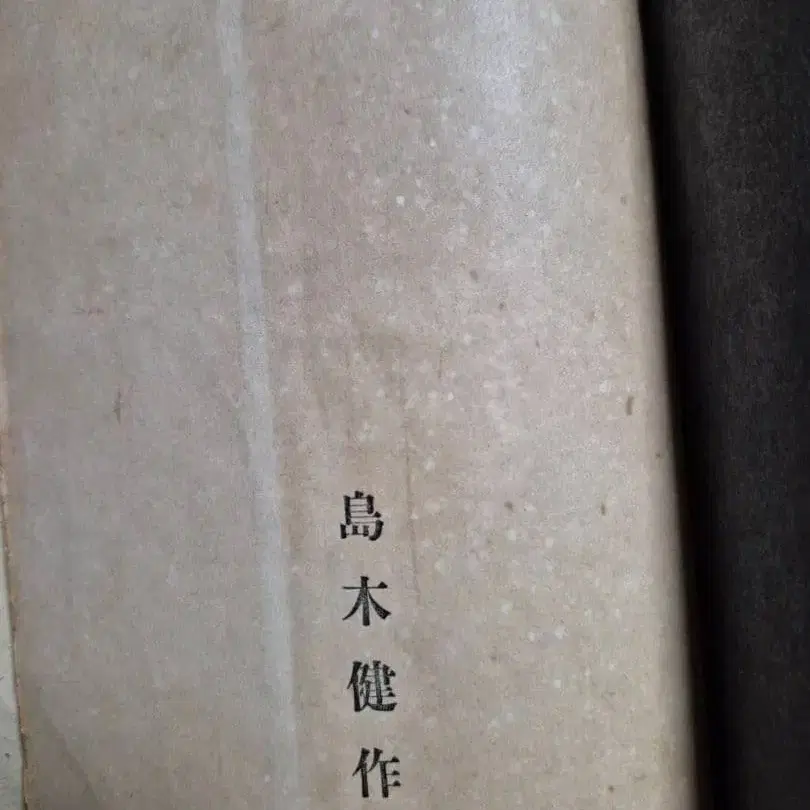 島木健作